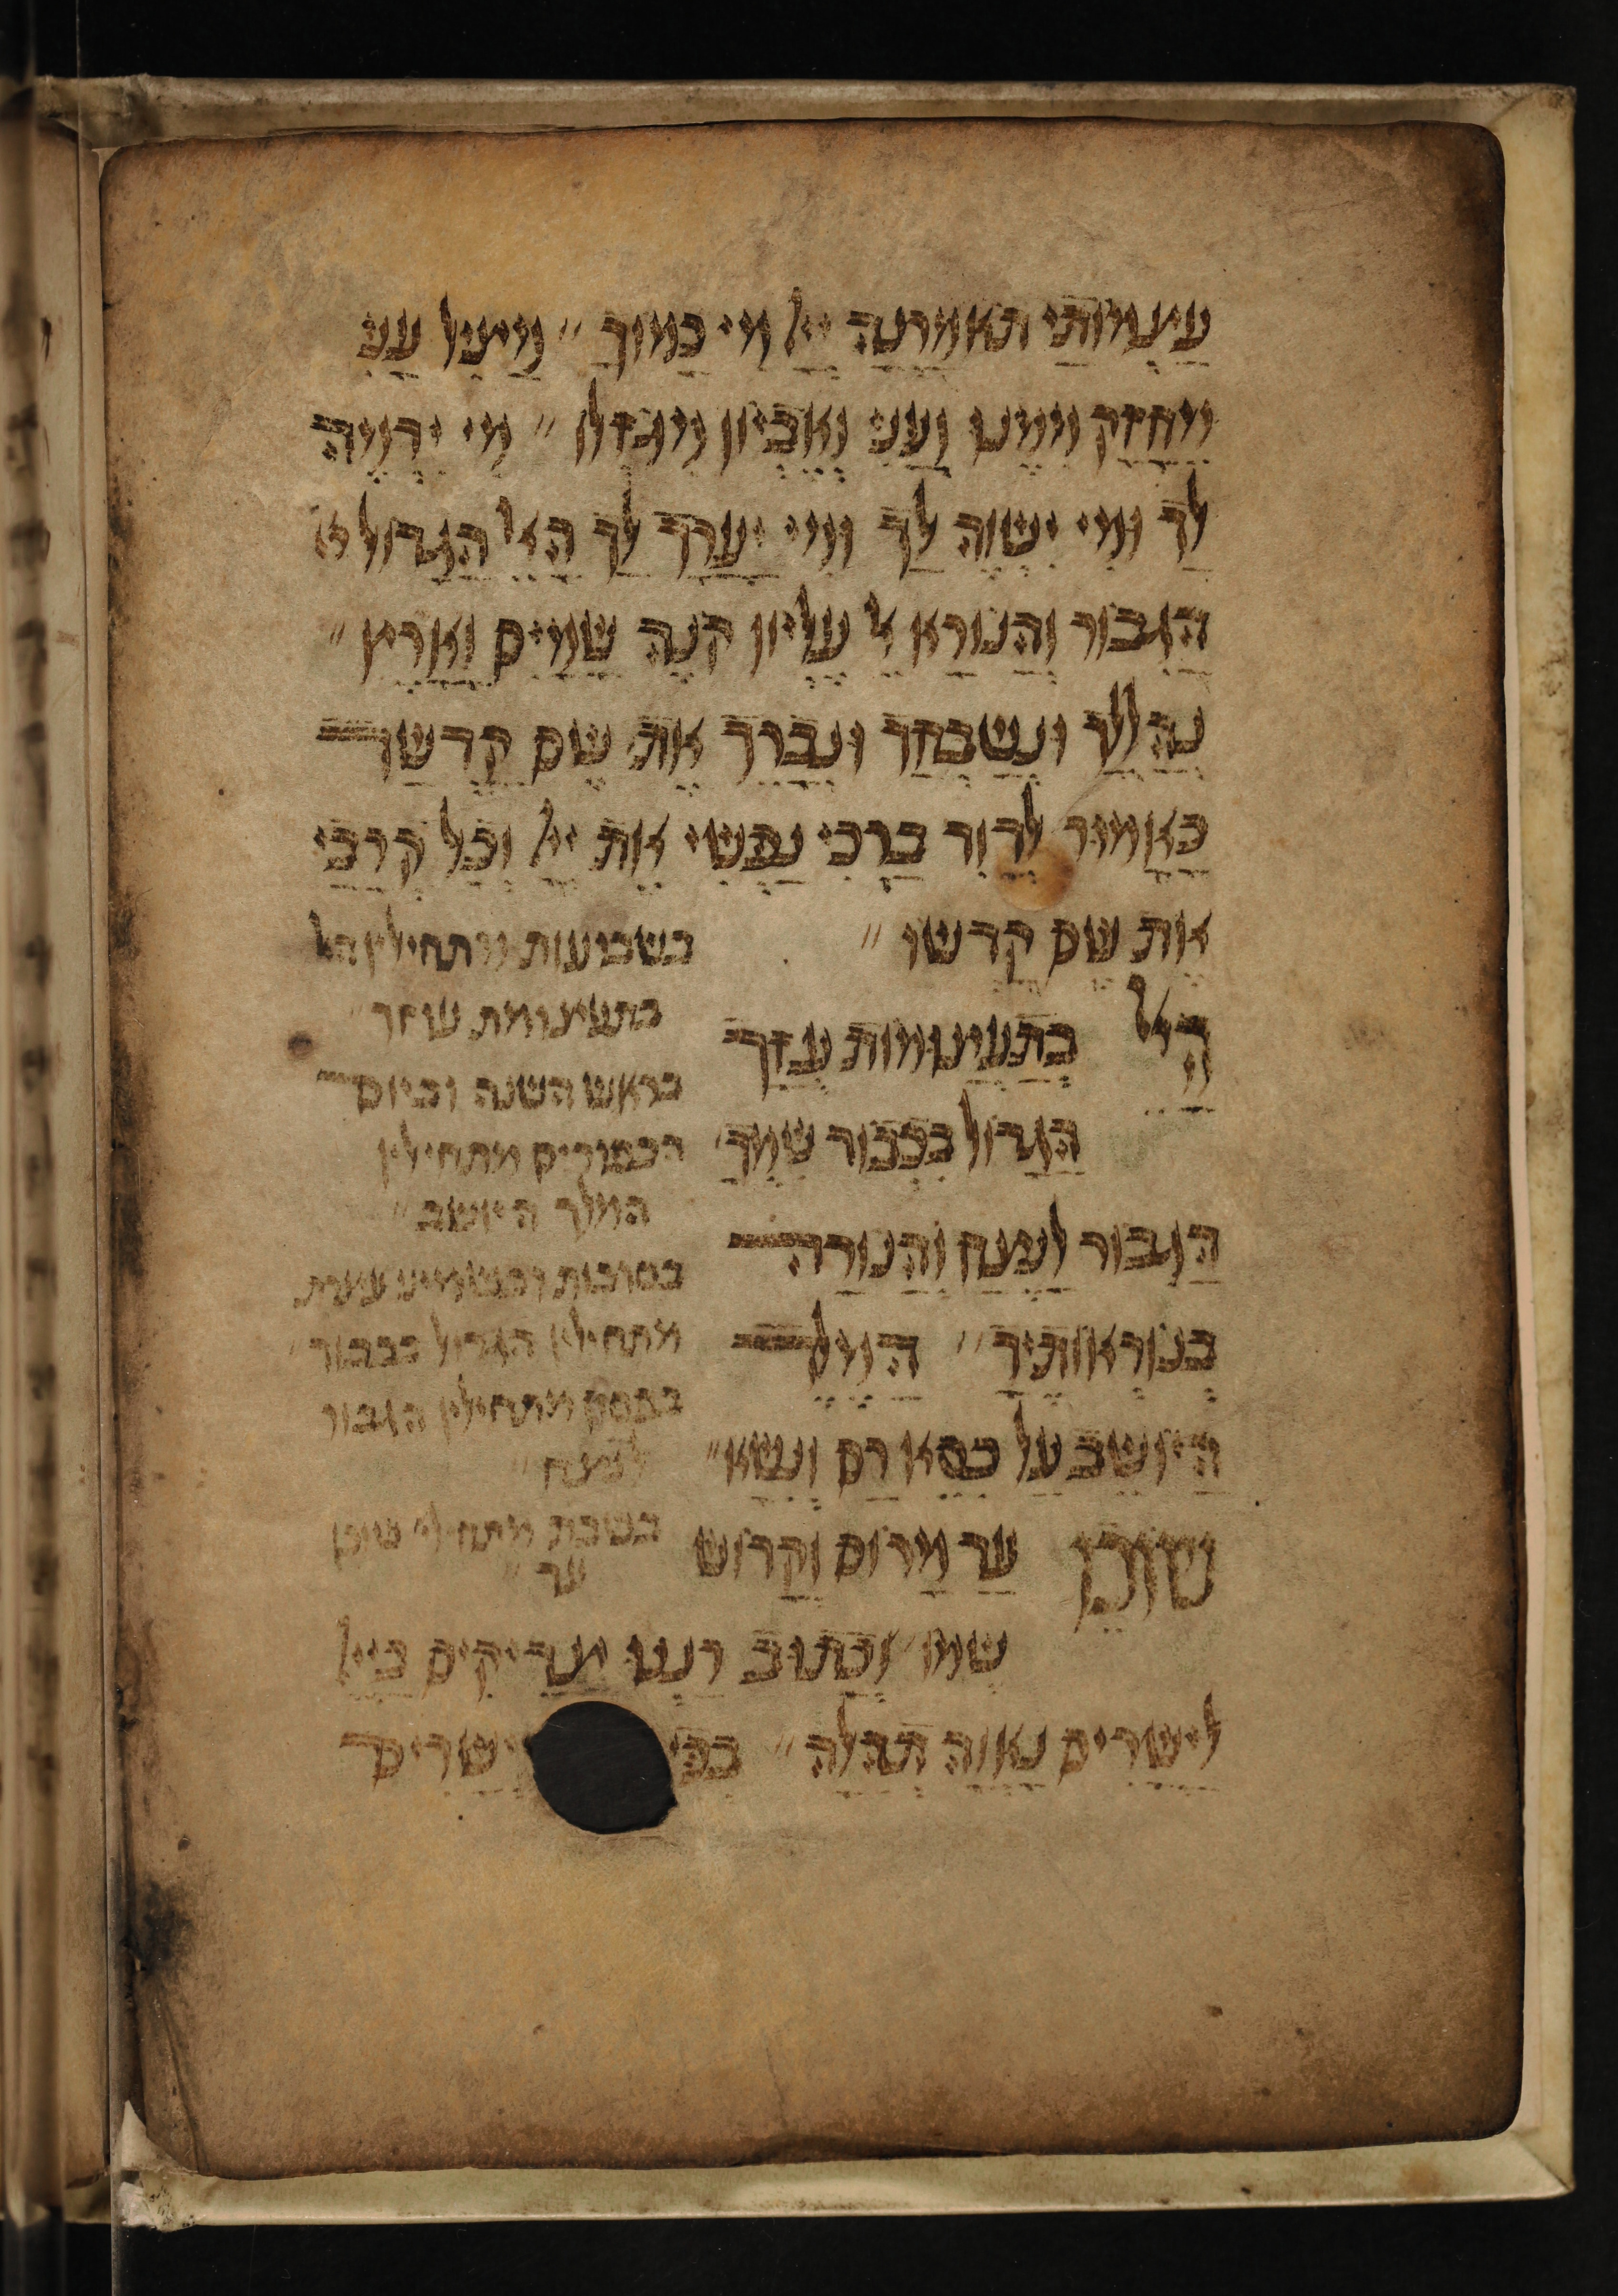 עצמותי תאמרנה ייי מי כמוך ״ מציל עני
מחזק ממנו ועני ואביון מגוזלו ״ מי ידמה
לך ומי ישוה לך ומי יערך לך האל הגדול
הגבור והנורא אל עליון קנה שמים וארץ ״
נהללך ונשבחך ונברך את שם קדשך
כאמור לדוד ברכי נפשי את ייי וכל קרבי
את שם קדשו ״
האל בתעצומות עוזך
הגדול בכבוד שמך
הגבור לנצח והנורה
בנוראותיך ״ המלך
היושב על כסא רם ונשא ״
שוכן עד מרום וקדוש
שמו ״ וכתוב רננו צדיקים בייי
לישרים נאוה תהלה ״ בפי ישרים
בשבועות מתחילין האל
בתעצומת עוזך ״
בראש השנה וביום
הכפורים מתחילין
המלך היושב ״
בסוכות ובשמיני עצרת
מתחילין הגדול בכבוד ״
בפסח מתחילין הגבור
לנצח ״
בשבת מתחילי שוכן
עד ״